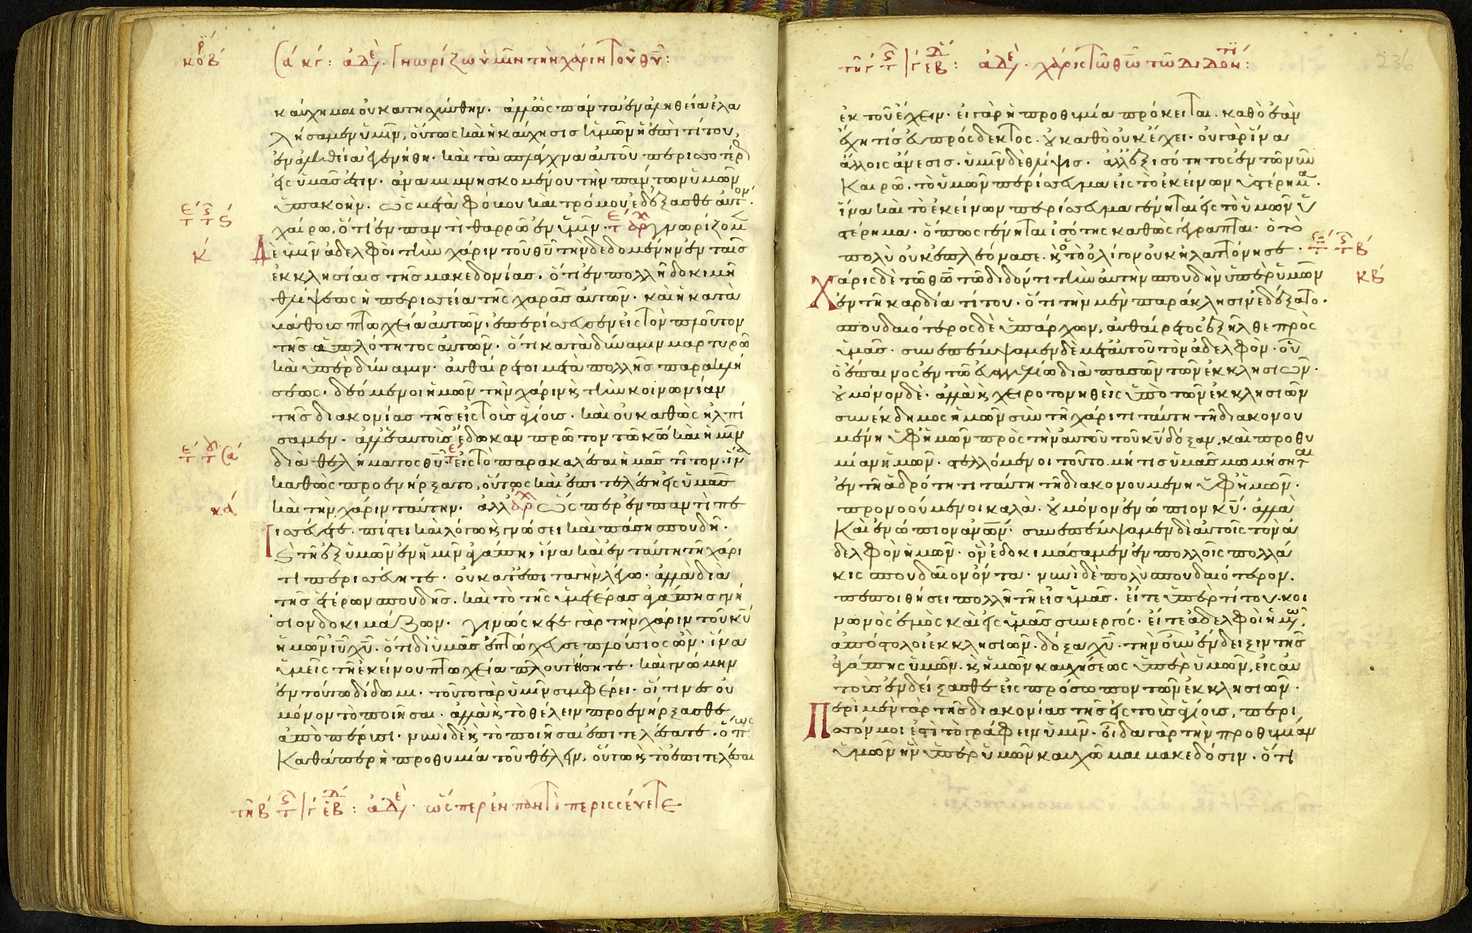 (ά κϛ: ἀδἐλ. Γνωρίζω ὑμῖν τὴν χάριν τοῦ θῦ:
καύχημαι οὐ κατηχύνθην· ἀλλ' ὡς πάντα ἐν ἀληθεία ἐλα
λήσαμεν ὑμῖν, οὕτως καὶ ἡ καύχησις ὑμῶν ἡ ἐπὶ τίτου,
ἐν ἀληθεία ἐγενήθη· καὶ τὰ σπλάχνα αὐτοῦ περισσοτέρ
εἰς ὑμᾶς ἐστιν· ἀναμιμνησκομένου τὴν πάντων ὑμῶν
ὑπακοήν· ὡς μετὰ φόβου καὶ τρόμου ἐδέξασθε αὐτόν·
χαίρω, ὅτι ἐν παντὶ θαρρῶ ἐν ὑμῖν· γνωρίζομ
Δὲ ὑμῖν ἀδελφοὶ τὴν χάριν τοῦ θῦ τὴν δεδομένην ἐν ταῖς
ἐκκλησίαις τῆς μακεδονίας· ὅτι ἐν πολλῆ δοκιμῆ
θλίψεως ἡ περισσεία τῆς χαρᾶς αὐτῶν· καὶ ἡ κατὰ
βάθους πτωχεία αὐτῶν· ἐπερίσσευσεν εἰς τὸν πλοῦτον
τῆς ἁπλότητος αὐτῶν· ὅτι κατὰ δύναμιν μαρτυρῶ
καὶ ὑπὲρ δύναμιν· αὐθαίρετοι μετὰ πολλῆς παρακλή
σεως· δεόμενοι ἡμῶν τὴν χάριν κ τὴν κοινωνίαν
τῆς διακονίας τῆς εἰς τοὺς ἁγίους· καὶ οὐ καθὼς ἠλπί
σαμεν· ἀλλ' ἑαυτοὺς ἔδωκαν πρῶτον τῶ κῶ καὶ ἡμῖν
διὰ θελήματος θῦ· εἰς τὸ παρακαλέσαι ἡμᾶς τίτον· ἵνα
καθὼς προενήρξατο, οὕτως καὶ ἐπιτελέση εἰς ὑμᾶς
καὶ τὴν χάριν ταύτην· ἀλλ' ὥσπερ ἐν παντὶ πε
ρισσεύετε· πίστει καὶ λόγω κ γνώσει καὶ πάση σπουδῆ·
κ τῆ ἐξ ὑμῶν ἐν ἡμῖν ἀγάπη, ἵνα καὶ ἐν ταύτη τῆ χάρι
τι περισσεύητε· οὐ κατ' ἐπιταγὴν λέγω· ἀλλὰ διὰ
τῆς ἑτέρων σπουδῆς· καὶ τὸ τῆς ὑμετέρας ἀγάπης γνή
σιον δοκιμάζων· γινώσκετε γὰρ τὴν χάριν τοῦ κῦ
ἡμῶν ιῦ χῦ· ὅτι δι' ὑμᾶς ἐπτώχευσε πλούσιος ὤν· ἵνα
ὑμεῖς τῆ ἐκείνου πτωχεία πλουτήσητε· καὶ γνώμην
ἐν τούτω δίδωμι· τοῦτο γὰρ ὑμῖν συμφέρει· οἵτινες οὐ
μόνον τὸ ποιῆσαι· ἀλλὰ κ τὸ θέλειν προενήρξασθε
ἀπὸ πέρυσι· νυνὶ δὲ κ τὸ ποιῆσαι ἐπιτελέσατε· ὅπως
καθάπερ ἡ προθυμία τοῦ θέλειν, οὕτω κ τὸ ἐπιτελέσαι
ἀδἐλ. ὥσπερ ἐν παντὶ περισσεύετε
ἀδἐλ. χάρις τῶ θῶ τῶ διδόντι:
236
ἐκ τοῦ ἔχειν· εἰ γὰρ ἡ προθυμία πρόκειται· καθὸ ἐὰν
ἔχη τίς εὐπρόσδεκτος· οὐ καθὸ οὐκ ἔχει· οὐ γὰρ ἵνα
ἄλλοις ἄνεσις· ὑμῖν δὲ θλίψις· ἀλλ' ἐξ ἰσότητος ἐν τῶ νῦν
καιρῶ, τὸ ὑμῶν περίσσευμα εἰς τὸ ἐκείνων ὑστέρημα·
ἵνα καὶ τὸ ἐκείνων περίσσευμα γένηται εἰς τὸ ὑμῶν ὑ
στέρημα· ὅπως γένηται ἰσότης καθὼς γέγραπται· ὁ τὸ
πολὺ οὐκ ἐπλεόνασε· κ ὁ τὸ ὀλίγον οὐκ ἠλαττόνησε·
Χάρις δὲ τῶ θῶ τῶ διδόντι τὴν αὐτὴν σπουδὴν ὑπὲρ ὑμῶν
ἐν τῆ καρδία τίτου· ὅτι τὴν μὲν παράκλησιν ἐδέξατο·
σπουδαιότερος δὲ ὑπάρχων, αὐθαίρετος ἐξῆλθε πρὸς
ὑμᾶς· συνεπέμψαμεν δὲ μετ' αὐτοῦ τὸν ἀδελφὸν· οὗ
ὁ ἔπαινος ἐν τῶ εὐαγγελίω διὰ πασῶν τῶν ἐκκλησιῶν·
οὐ μόνον δὲ· ἀλλὰ κ χειροτονηθεὶς ὑπὸ τῶν ἐκκλησιῶν
συνέκδημος ἡμῶν σὺν τῆ χάριτι ταύτη τῆ διακονου
μένη ὑφ' ἡμῶν πρὸς τὴν αὐτοῦ τοῦ κῦ δόξαν, καὶ προθυ
μίαν ἡμῶν· στελλόμενοι τοῦτο μή τις ὑμᾶς μωμήσηται
ἐν τῆ ἁδρότητι ταύτη τῆ διακονουμένη ὑφ' ἡμῶν·
προνοούμενοι καλὰ· οὐ μόνον ἐνώπιον κῦ· ἀλλὰ
καὶ ἐνώπιον ἀνῶν· συνεπέμψαμεν δὲ αὐτοῖς τὸν ἀ
δελφὸν ἡμῶν· ὃν ἐδοκιμάσαμεν ἐν πολλοῖς πολλά
κις σπουδαῖον ὄντα· νυνὶ δὲ πολὺ σπουδαιότερον·
πεποιθήσει πολλῆ τῆ εἰς ὑμᾶς· εἴτε ὑπὲρ τίτου· κοι
νωνὸς ἐμὸς καὶ εἰς ὑμᾶς συνεργός· εἴτε ἀδελφοὶ ἡμῶν,
ἀπόστολοι ἐκκλησιῶν· δόξα χῦ· τὴν οὖν ἔνδειξιν τῆς
ἀγάπης ὑμῶν· κ ἡμῶν καυχήσεως ὑπὲρ ὑμῶν, εἰς αὐ
τοὺς ἐνδείξασθε εἰς πρόσωπον τῶν ἐκκλησιῶν·
Περὶ μὲν γὰρ τῆς διακονίας τῆς εἰς τοὺς ἁγίους, περι
σσόν μοι ἐστὶ τὸ γράφειν ὑμῖν· οἶδα γὰρ τὴν προθυμίαν
ὑμῶν ἣν ὑπὲρ ὑμῶν καυχῶμαι μακεδόσιν· ὅτι